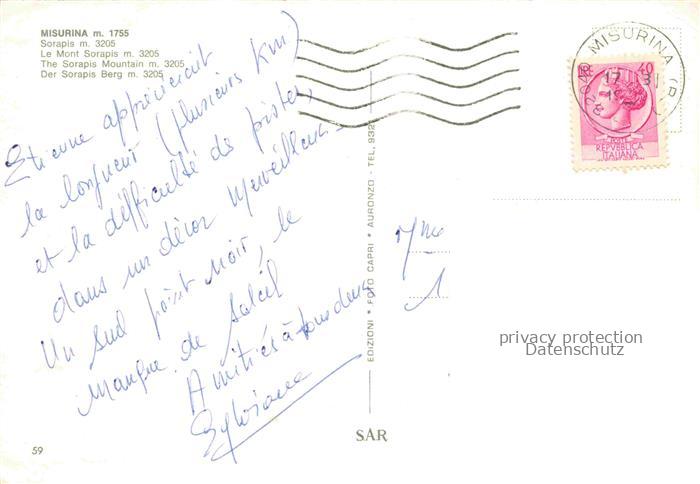 MISURINA m. 1755
Sorapis m. 3205
Le Mont Sorapis m. 3205
The Sorapis Mountain m. 3205
Der Sorapis Berg m. 3205
Etienne apprécierait
la longueur (plusieurs Km)
et la difficulté de pistes,
dans un décor merveilleux -
Un seul point noir, le
manque de Soleil
Amitiés à tous deux
Sylviane
59
EDIZIONI * FOTO CAPRI * AURONZO - TEL. 932
SAR
MISURINA
17
40
POSTE
REPVBBLICA
ITALIANA
Mme
privacy protection
Datenschutz